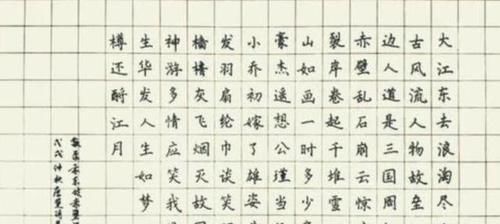 大江东去浪淘尽
古风流人物故垒
边人道是三国周
赤壁乱石崩云惊
裂岸卷起千堆雪
山如画一时多少
豪杰遥想公瑾当
小乔初嫁了雄姿
发羽扇纶巾谈笑
樯橹灰飞烟灭故
神游多情应笑我
生华发人生如梦
樽还酹江月
苏东坡赤壁
戊戌仲秋